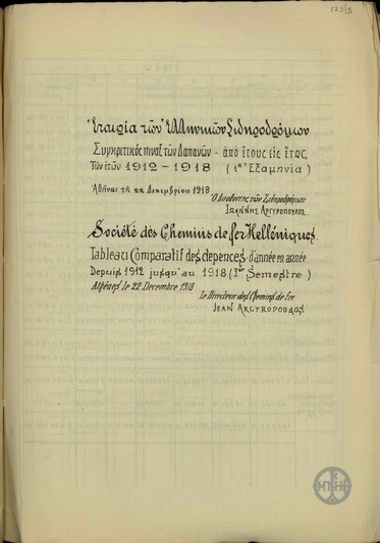 173/5
Ἑταιρία τῶν Ἑλληνικῶν Σιδηροδρόμων
Συγκριτικός πίναξ τῶν Δαπανῶν - ἀπό ἔτους εἰς ἔτος
Τῶν ἐτῶν 1912-1918 (1η Ἑξαμηνία)
Ἀθῆναι τῇ 22 Δεκεμβρίου 1918
Ὁ Διευθυντής τῶν Σιδηροδρόμων
ΙΩΑΝΝΗΣ ΑΡΓΥΡΟΠΟΥΛΟΣ
Société des Chemins de fer Helléniques
Tableau Comparatif des depences d'année en année
Depuis 1912 jusqu'au 1918 (Ier Semestre)
Athènes le 22 Decembre 1918
le Directeur des Chemins de fer
JEAN ARGYROPOULOS